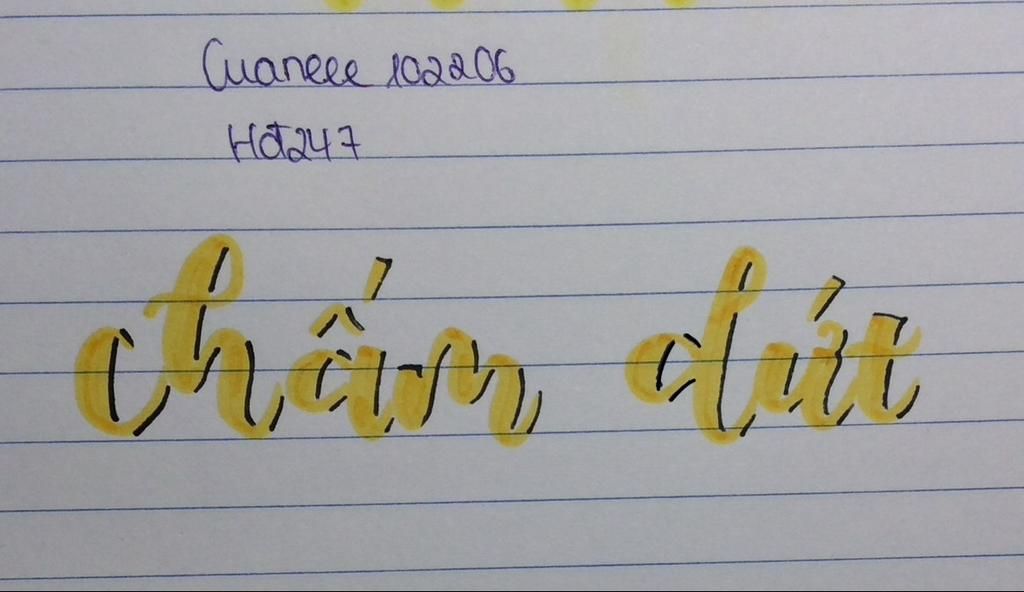 Cuaneee 102206
Hot247
chấm dứt